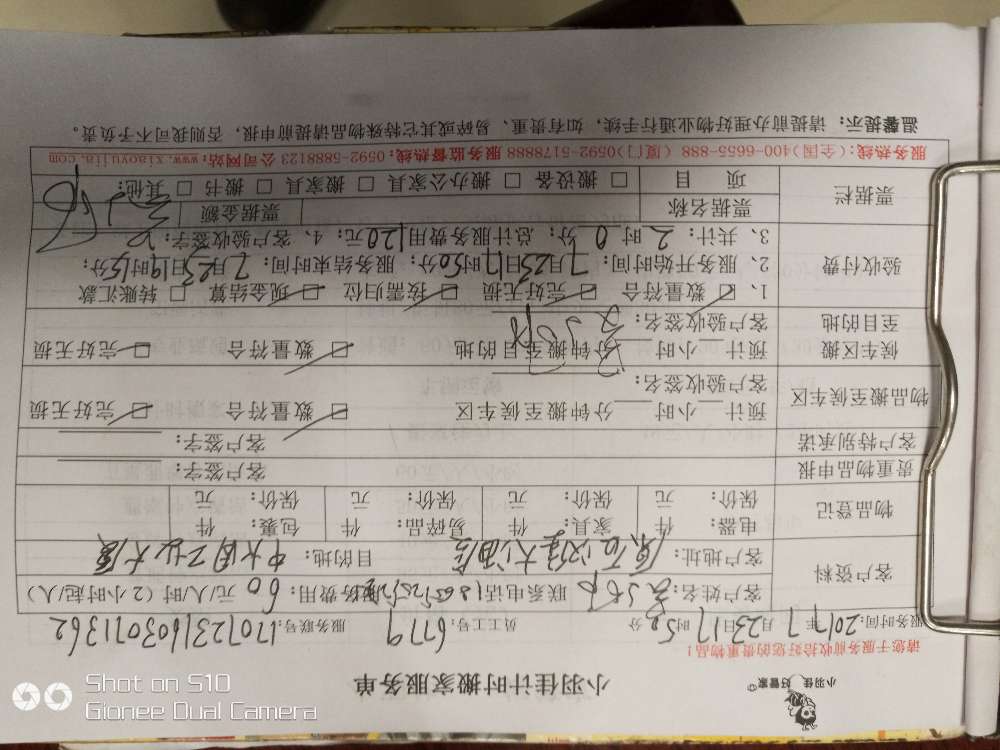 小羽佳 好管家
小羽佳计时搬家服务单
请您于服务前收拾好您的贵重物品！
服务时间：2017年7月23日17时50分 员工工号：6779 服务号：170723160307 1362
客户资料 客户姓名： 联系电话 服务费用：60元/人/时（2小时起/人）
客户地址： 目的地：中大国工业大厦
物品登记 电器： 件 家具： 件 易碎品： 件 包裹： 件
保价： 元 保价： 元 保价： 元 保价： 元
贵重物品申报 客户签字：
客户特别承诺 客户签字：
物品搬至候车区 预计 小时 分钟搬至候车区 □ 数量符合 □ 完好无损
客户验收签名：
候车区搬至目的地 预计 小时 分钟搬至目的地 □ 数量符合 □ 完好无损
客户验收签名：
验收付费 1、□ 数量符合 □ 完好无损 □ 按需归位 □ 现金结算 □ 转账汇款
2、服务开始时间：7月23日17时50分；服务结束时间：7月23日19时51分；
3、共计：2时0分；总计服务费用120元；4、客户验收签字：
票据栏 票据名称 票据金额
项 目 □ 搬设备 □ 搬办公家具 □ 搬家具 □ 搬书 □ 其他：
服务热线：(全国)400-6655-888 (厦门)0592-5178888 服务监督热线：0592-5888123 公司网站：www.xiaoyujia.com
温馨提示：请提前办理好物业通行手续，如有贵重、易碎或其它特殊物品请提前申报，否则我司不予负责。
Shot on S10
Gionee Dual Camera